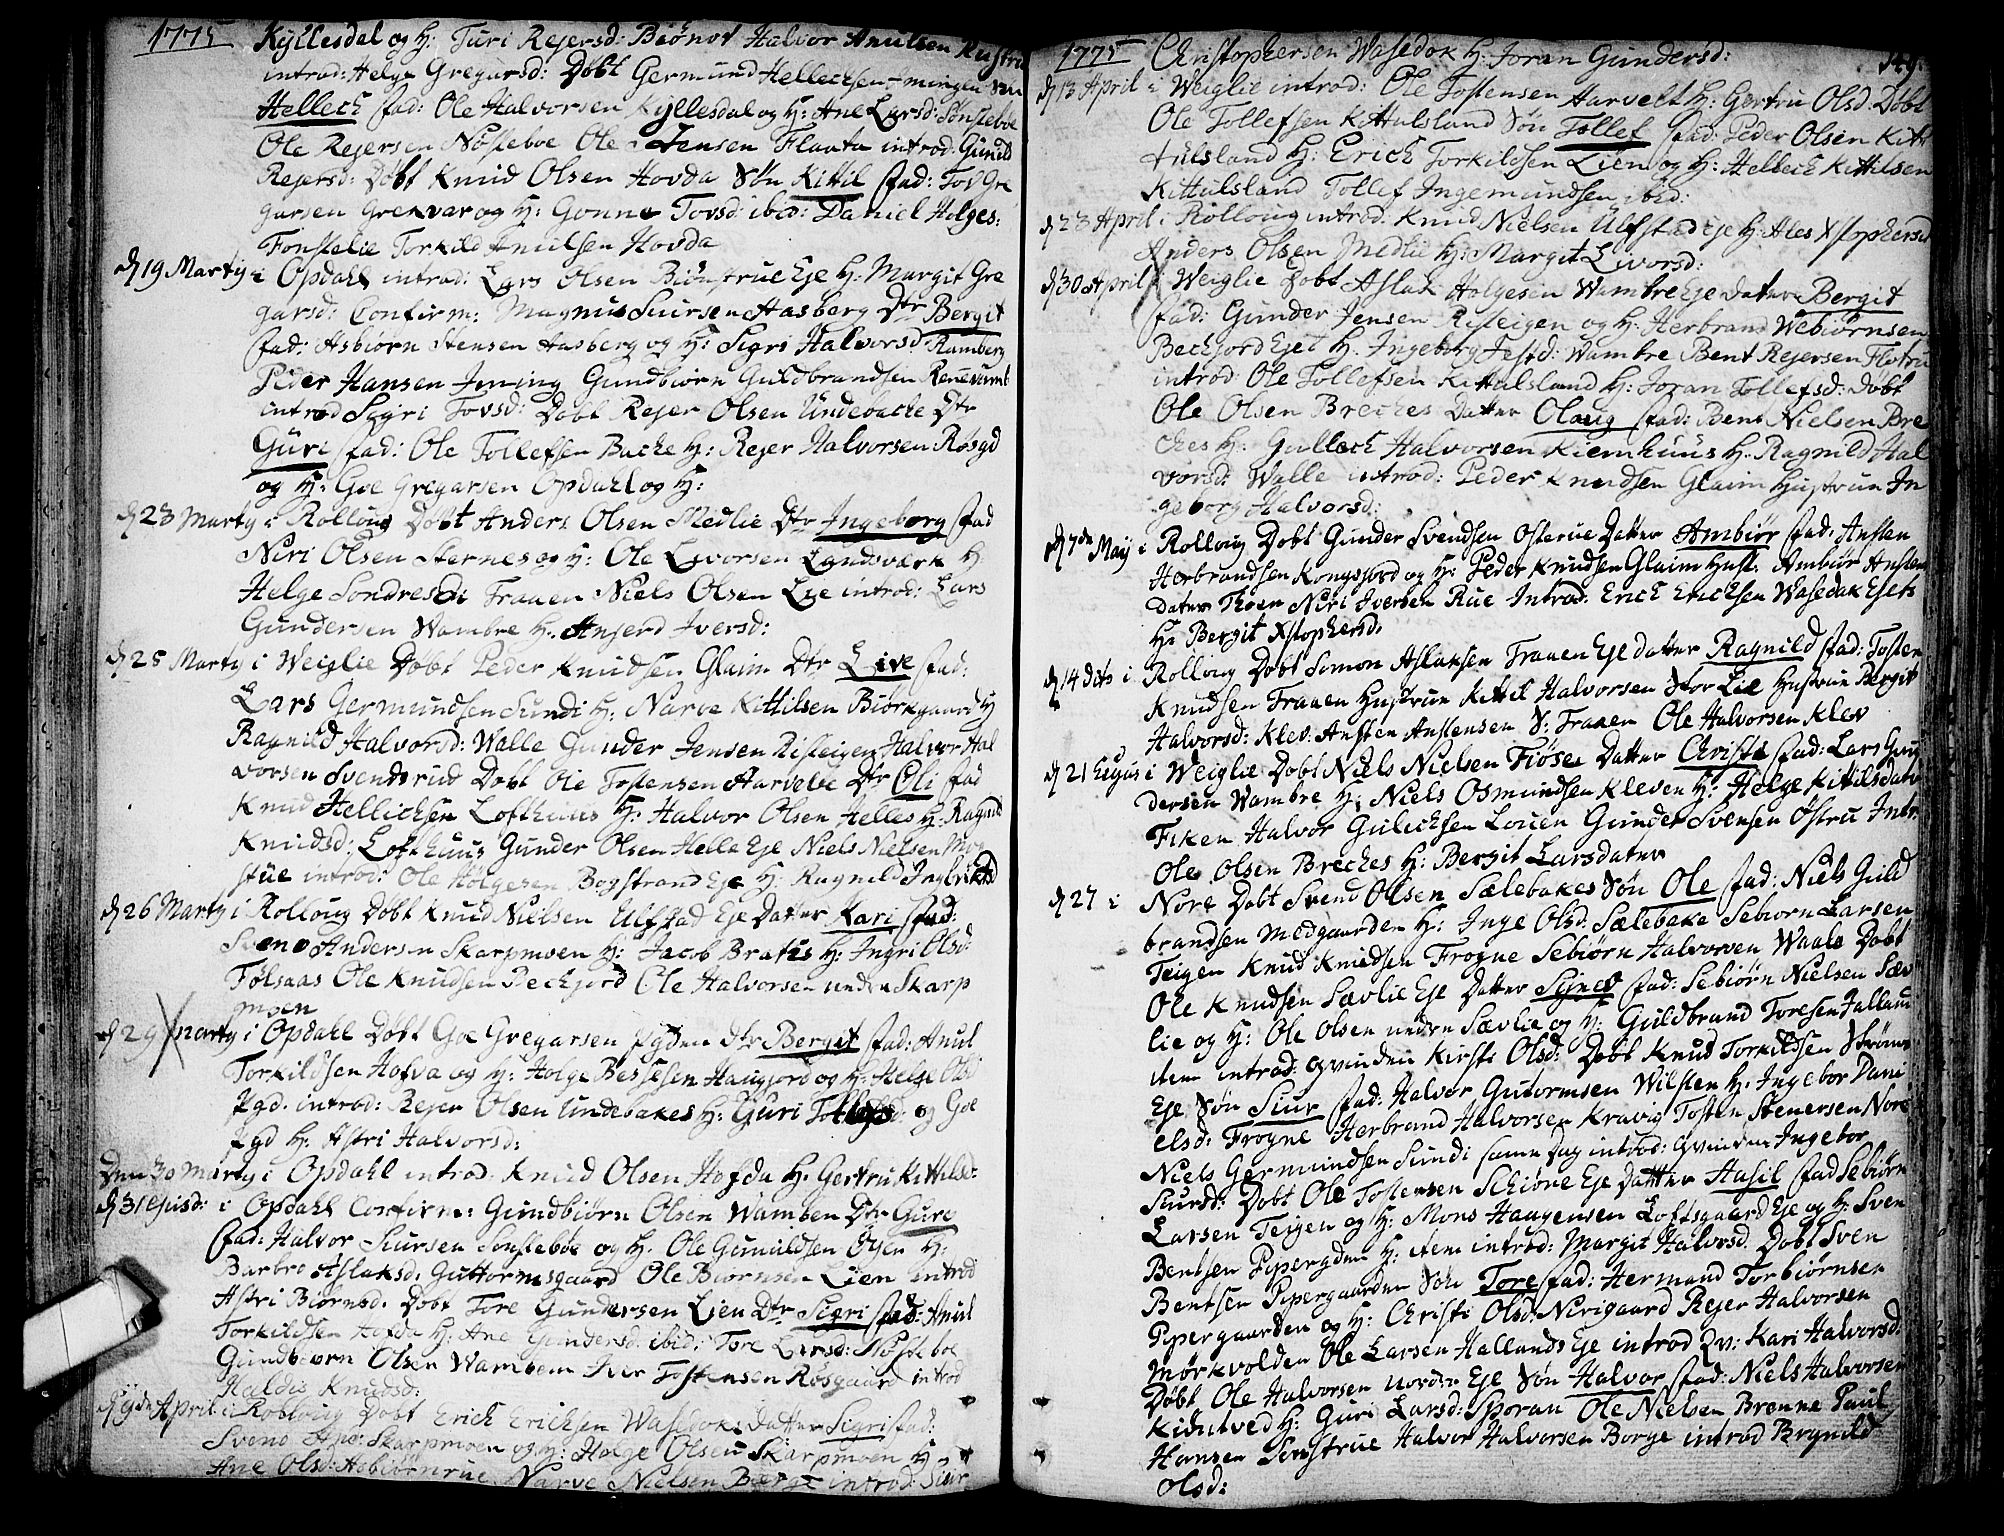 1775 Kyllesdal og H: Turi Rejersd: Biønov Halvor Knutsen Rustru
introd: Helge Gregarsd: Døbt Germund Hellechsen mingen Søn
Hellech fad: Ole Halvorsen Kyllesdal og H: Ane Larsd: Sønsteboe
Ole Rejersen Nøsteboe Ole Jensen Flaata introd: Gunild
Rejersd: Døbt Knud Olsen Hovda Søn Kittil fad: Tov Gre
garsen Grekvar og H: Gonne Tovsd: ibid: Daniel Holges:
Fonstelie Torkild Knutsen Hovda
d 19 Marty i Opdahl introd: Lars Olsen Biønstrue Eje H: Margit Gre
garsd: Confirm: Magnus Siursen Aasberg Dtr Bergit
fad: Asbiørn Stensen Aasberg og H: Sigri Halvorsd: Ramberg
Peder Hansen Gundbiørn Guldbrandsen
introd Sigri Tovsd: Døbt Rejer Olsen Undebacke Dtr
Guri fad: Ole Tollefsen Backe H: Rejer Halvorsen Røsgd
og H: Goe Gregarsen Opdahl og H:
d 23 Marty i Rolloug Døbt Anders Olsen Medlie Dtr Ingeborg fad
Niri Olsen Sternes og H: Ole Livorsen Landsværk H:
Helge Sondresd: Fraaen Niels Olsen Lie introd: Lars
Gundersen Wambre H: Anserd Iversd:
d 25 Marty i Weiglie Døbt Peder Knudsen Glaim Dtr Live fad:
Lars Germundsen Sundi H: Narve Kittilsen Biørkgaard H
Ragnild Halvorsd: Walle Gunder Jensen Risteigen Halvor Hal
vorsen Svendsrud Døbt Ole Tostensen Harvelt Dtr Oli fad
Knud Hellichsen Lofthuus H: Halvor Olsen Helles H: Ragnild
Knudsd: Lofthuus Gunder Olsen Helle Eje Niels Nielsen Mog
stue introd: Ole Holgesen Bogstrand Eje H: Ragnild Ingbrictsd
d 26 Marty i Rolloug Døbt Knud Nielsen Ulfstad Eje Datter Kari fad:
Svend Andersen Skarpmoen H: Jacob Bratis H: Ingri Olsd:
Følsaas Ole Knudsen Beckjord Ole Halvorsen under Skarp
moen
d 29 Marty i Opdahl Døbt Goe Gregarsen Pgden Dtr Bergit fad: Knut
Torkildsen Hofva og H: Holge Bessesen Haugjord og H: Helge Olsd
Pgd. introd: Rejer Olsen Undebakes H: Guri og Goe
Pgd H: Astri Halvorsd:
Den 30 Marty i Opdahl introd. Knud Olsen Hofda H. Gertru Kittilsd:
d 31 Ejusd: i Opdahl Confirm: Gundbiørn Olsen Wamben Dtr Guro
fad: Halvor Siursen Sonsteboe og H. Ole Gunuldsen Øyen H:
Barbro Aslaksd: Guttormsgaard Ole Biørnsen Lien introd
Astri Biørnsd. Døbt Tore Gundersen Lien Dtr Sigri fad: Knut
Torkildsen Hofda H: Ane Gundersd: ibid: Tore Larsd: Nøsteboe
Gundbiørn Olsen Wamben Iver Tostensen Røsgaard introd
Haldis Knudsd:
d 9de April i Rolloug Døbt Erich Erichsen Wasedoks Datter Sigri fad:
Svend And: Skarpmoen og H: Holge Olsen Skarpmoen H:
Ane Olsd: Aabiønrue Narve Nielsen Berge introd: Siur
1775 Christophersen Wasedok H: Joran Gundersd: 149.
d 13 April i Weiglie introd: Ole Tostensen Harvelt H: Gertru Olsd Døbt
Ole Tollefsen Kittulsland Søn Tollef fad: Peder Olsen Kit
tulsland H: Erich Torkildsen Lien og H: Hellech Kittilsen
Kittulsland Tollef Ingemundsen ibid:
d 23 April i Rolloug introd: Knud Nielsen Ulfstad Eje H: Ales Xstophersd
Anders Olsen Medlie H: Margit Livorsd:
d 30 April i Weiglie Døbt Aslak Holgesen Wambre Eje Datter Bergit
fad: Gunder Jensen Risteigen og H: Herbrand Webiørnsen
Beckjord Ejet H. Ingeborg Jestd: Wambre Bent Rejersen Flotru
introd Ole Tollefsen Kittulsland H: Joran Tollefsd: Døbt
Ole Olsen Breches Datter Olaug fad: Bent Nielsen Bre
ches H: Gullech Halvorsen Kiemhuus H: Ragnild Hal
vorsd: Walle introd: Peder Knudsen Glaim Hustrue In
geborg Halvorsd:
d 7de Maij i Rolloug Døbt Gunder Svendsen Østerue Datter Ambiør fad: Ansten
Herbrandsen Kongsjord og H: Peder Knudsen Glaim Hust: Ambiør Ansten
Datter Thoen Niri Iversen Rue Introd: Erich Erichsen Wasedak Ejets
H: Bergit Xstophersd:
d 14 Dito i Rolloug Døbt Somon Aslaksen Fraaen Eje Datter Ragnild fad: Tosten
Knudsen Fraaen Hustrue Kittil Halvorsen Stor Lie Hustrue Bergit
Halvorsd: Klev: Ansten Anstensen S: Fraaen Ole Halvorsen Klev
d 21 Ejus i Weiglie Døbt Niels Nielsen Fiøse Datter Christi fad: Lars Gun
dersen Wambre H: Niels Osmundsen Kleven H: Helge Kittilsdatter
Fiken Halvor Gulichsen Louen Gunder Svensen Østru Intr:
Ole Olsen Breches H: Bergit Larsdatter
d 27 i Nore Døbt Svend Olsen Sælebakes Søn Ole fad: Niels Guld
brandsen Medgaarden H: Inge Olsd. Sælebake Sebiørn Larsen
Teigen Knud Knudsen Frogne Sebiørn Halvorsen Waale Døbt
Ole Knudsen Sævlie Eje Datter Signes fad: Sebiørn Nielsen Sæv
lie og H: Ole Olsen neden Sævlie og H: Guldbrand Toresen Jalland
item introd: Qvinden Kirsti Olsd: Døbt Knud Torkildsen Strøms
Eje Søn Siur fad: Halvor Gutormsen Wilsten H: Ingebor Dani
elsd: Frogne Herbrand Halvorsen Kravig Tosten Stenersen Nore
Niels Germundsen Sundi samme Dag introd: Qvinden Ingebor
Siursd: Døbt Ole Tostensen Schiøne Eje Datter Hasil fad Sebiørn
Larsen Teigen og H: Mons Haagensen Loftsgaard Eje og H: Sven
Bentsen Pipergden H: item introd: Margit Halvorsd. Døbt Sven
Bentsen Pipergaarden Søn Tore fad: Hermand Torbiørnsen
Pipergaarden og H: Christi Olsd: Nirigaard Rejer Halvorsen
Mørkvolden Ole Larsen Hallands Eje introd Qv: Kari Halvorsd:
Døbt Ole Halvorsen norder Eje Søn Halvor fad: Niels Halvorsen
Kidutved H: Guri Larsd: Sporan Ole Nielsen Brenne Paul
Hansen Senstrue Halvor Halvorsen Borge introd Brynild
Olsd: